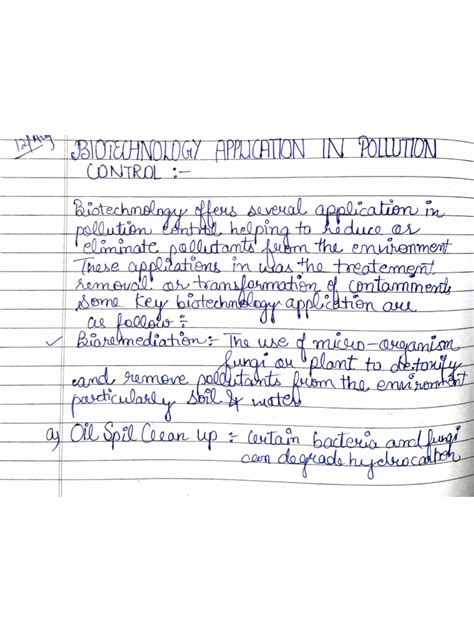 12/Aug
BIOTECHNOLOGY APPLICATION IN POLLUTION
CONTROL :-
Biotechnology offers several application in
pollution control helping to reduce or
eliminate pollutants from the environment
These applications in was the treatement
removal or transformation of contamments
some key biotechnology application are
as follow :-
Bioremediation :- The use of micro-organism
fungi or plant to detoxify
and remove pollutants from the environment
particularly soil & water
a) Oil Spil Clean up :- Certain bacteria and fungi
can degrade hydrocarbon